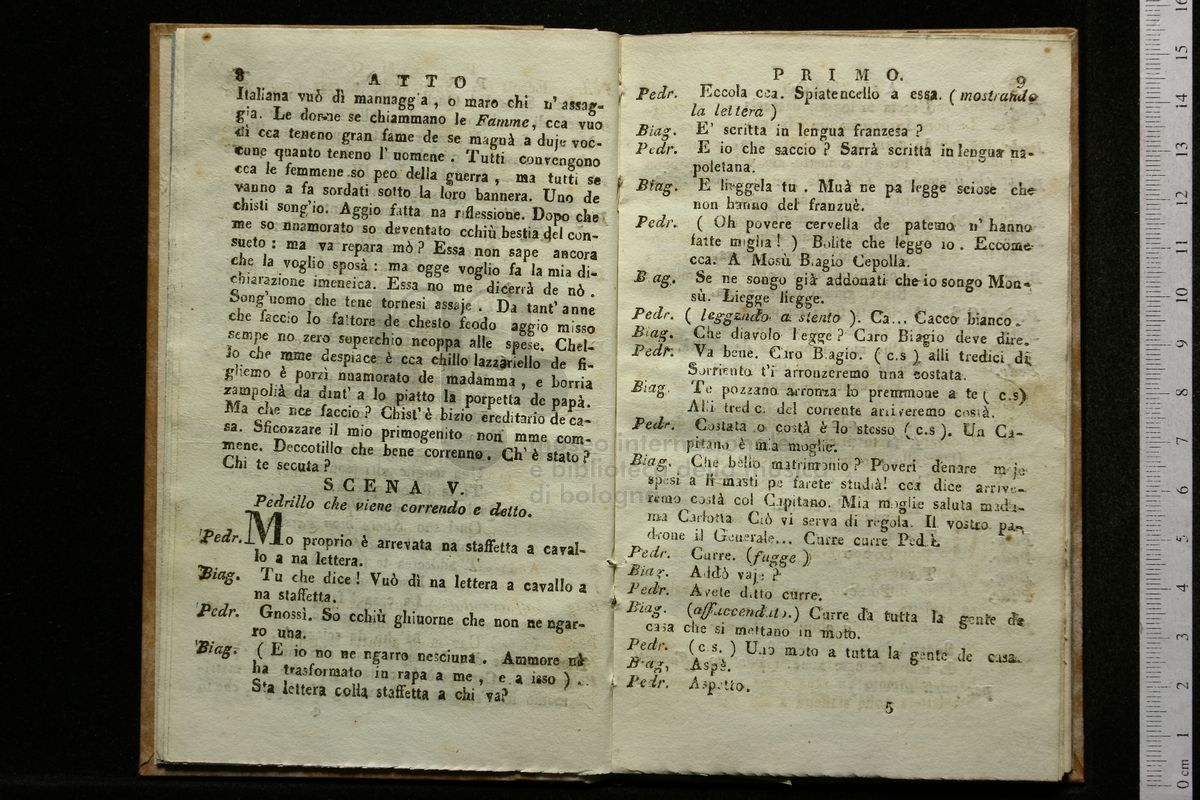 8 ATTO
Italiana vuò dì mannaggia, o maro chi n' assag-
gia. Le donne se chiammano le Famme, cca vuo
dì cca teneno gran fame de se magnà a duje voc-
cune quanto teneno l' uomene. Tutti convengono
cca le femmene so peo della guerra, ma tutti se
vanno a fa sordati sotto la loro bannera. Uno de
chisti song'io. Aggio fatta na riflessione. Dopo che
me so nnamorato so deventato cchiù bestia del con-
sueto: ma va repara mò? Essa non sape ancora
che la voglio sposà: ma ogge voglio fa la mia di-
chiarazione imeneica. Essa no me dicerrà de nò.
Song'uomo che tene tornesi assaje. Da tant' anne
che faccio lo fattore de chesto feodo aggio misso
sempe no zero superchio ncoppa alle spese. Chel-
lo che mme despiace è cca chillo lazzariello de fi-
gliemo è porzì nnamorato de madamma, e borria
zampolià da dint' a lo piatto la porpetta de papà.
Ma che nce faccio? Chist'è bizio ereditario de ca-
sa. Sficozzare il mio primogenito non mme com-
mene. Deccotillo che bene correnno. Ch'è stato?
Chi te secuta?
SCENA V.
Pedrillo che viene correndo e detto.
Pedr. Mo proprio è arrevata na staffetta a caval-
lo a na lettera.
Biag. Tu che dice! Vuò dì na lettera a cavallo a
na staffetta.
Pedr. Gnossì. So cchiù ghiuorne che non ne ngar-
ro una.
Biag. (E io no ne ngarro nesciuna. Ammore nà
ha trasformato in rapa a me, e a isso).
Sta lettera colla staffetta a chi va?
PRIMO. 9
Pedr. Eccola cca. Spiatencello a essa. (mostrando
la lettera)
Biag. E' scritta in lengua franzesa?
Pedr. E io che saccio? Sarrà scritta in lengua na-
poletana.
Biag. E lieggela tu. Muà ne pa legge sciose che
non hanno del franzuè.
Pedr. (Oh povere cervella de patemo n' hanno
fatte miglia!) Bolite che leggo io. Eccome
cca. A Mosù Biagio Cepolla.
Biag. Se ne songo già addonati che io songo Mon-
sù. Liegge liegge.
Pedr. (leggendo a stento). Ca... Cacco bianco.
Biag. Che diavolo liegge? Caro Biagio deve dire.
Pedr. Va bene. Caro Biagio. (c.s) alli tredici di
Sorriento t'i arronzeremo una costata.
Biag. Te pozzano arronza lo premmone a te (c.s)
Alli tredic. del corrente arriveremo costà.
Pedr. Costata o costà è lo stesso (c.s). Un Ca-
pitano è mia moglie.
Biag. Che bello matrimonio? Poveri denare mieje
spesi a li masti pe farete studià! cca dice arrive-
remo costà col Capitano. Mia moglie saluta mada-
ma Carlotta Ciò vi serva di regola. Il vostro pa-
drone il Generale... Curre curre Ped.
Pedr. Curre. (fugge)
Biag. Addò vaje?
Pedr. Avete ditto curre.
Biag. (affaccendato.) Curre da tutta la gente de
casa che si mettano in moto.
Pedr. (c.s.) Uno moto a tutta la gente de casa.
Biag, Aspè.
Pedr. Aspetto.
5